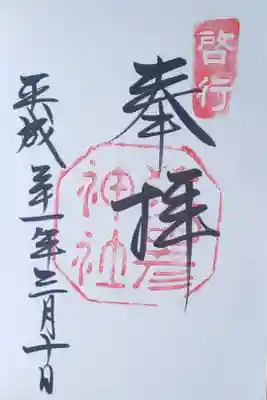 啓行
奉拝
彦
神社
平成廿一年三月十日